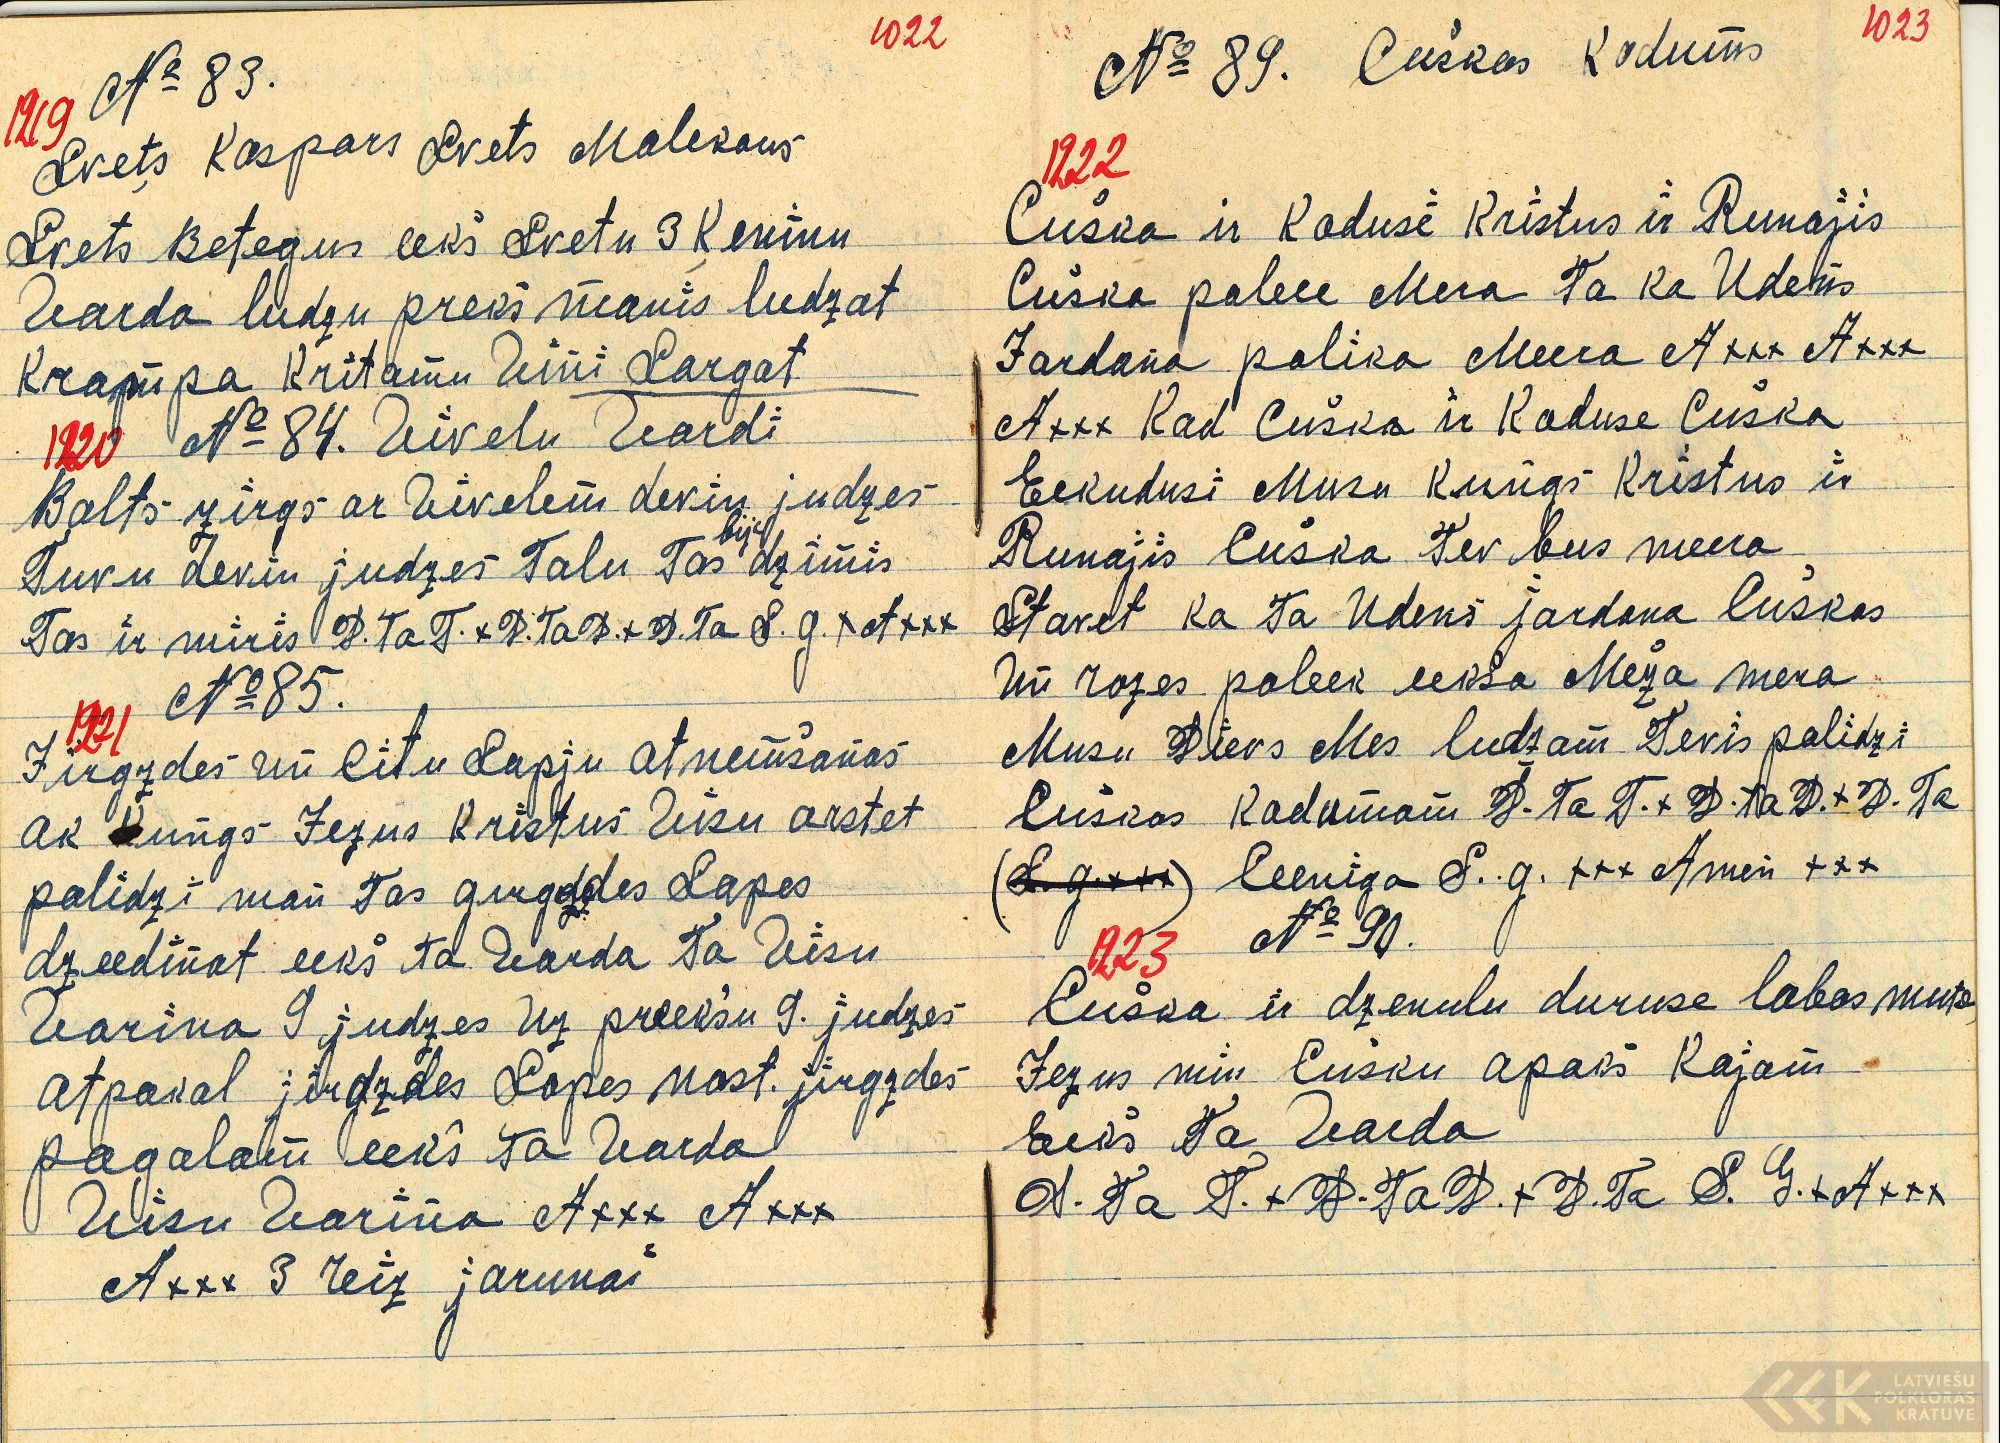 1022
№ 83.
1219
Svets, Kaspars Svets Malekaus
Svets Betegus eekš Svetu 3 Ķeninu
Varda ludzu preks manis ludzat
Krampa Kritamu Vini Sargat
1220 № 84. Vivelu Vardi
Balts zirgs ar Vivelem devin judzes
Tuvu devin judzes Talu Tas bij dzimis
Tas ir miris D.Ta T.+D.TaD.+D.Ta S.g.+A+++
№ 85.
1221
Jirgzdes un Citu Lapju atnemšanas
ak Kungs Jezus Kristus Visu arstet
palidzi man Tas girgzdes Lapes
dzeedinat eekš ta Varda Ta Visu
Varina 9 judzes Uz preekšu 9. judzes
atpakal jirgzdes Lapes nost. jirgzdes
pagalam eekš Ta Varda
Visu Varina A+++ A+++
A+++ 3 reiz jarunai
1023
№ 89. Cuškas Kodums
1222
Cuška ir Kodusi Kristus ir Runajis
Cuška palee Mera Ta ka Udens
Jardana palika Meera A+++ A+++
A+++ Kad Cuška ir Koduse Cuška
Eekudusi Musu Kungs Kristus ir
Runajis Cuška Tev bus meera
Stavet ka Ta Udens jardana Cuškas
Un rozes paleek eekša Meža mera
Musu Dievs Mes ludzam Tevis palidzi
Cuškas Kodumam D.Ta T.+D.TaD.+D.Ta
(S.g.+++) Ceeniga S.g. +++ Amen +++
№ 90.
1223
Cuška ir dzenulu duruse labas mute
Jezus min Cušku apakš Kajam
Eekš Ta Varda
D.Ta T.+D.TaD.+D.Ta S.G.+A+++
LATVIEŠU
FOLKLORAS
KRATUVE